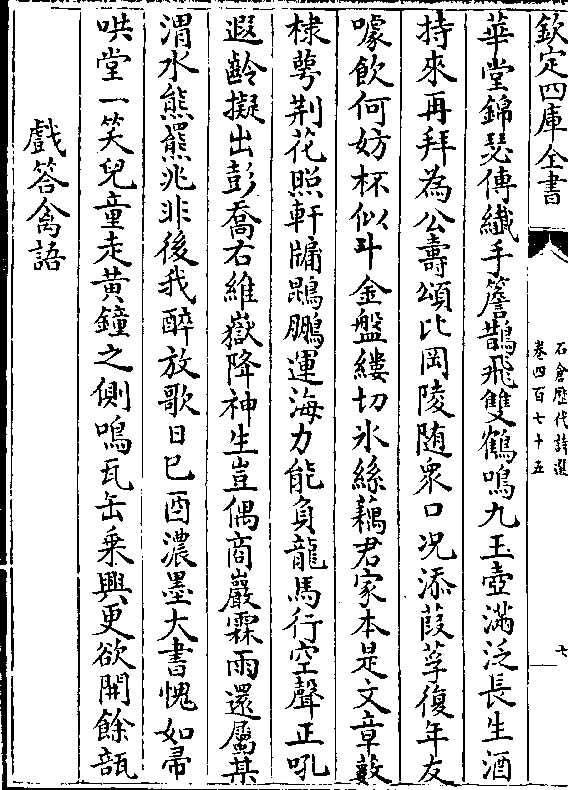 欽定四庫全書
石倉歷代詩選
卷四百七十五
七
華堂錦瑟傳纖手簷鵲飛雙鶴鳴九玉壺滿泛長生酒
持來再拜為公壽頌比岡陵随衆口况添葭莩復年友
噱飲何妨杯似斗金盤縷切氷絲藕君家本是文章藪
棣萼荆花照軒牖鵾鵬運海力能負龍馬行空聲正吼
遐齡擬出彭喬右維嶽降神生豈偶商巖霖雨還屬某
渭水熊羆兆非後我醉放歌日巳酉濃墨大書愧如帚
哄堂一笑兒童走黄鐘之側鳴瓦缶乗興更欲開餘瓿
戲答禽語